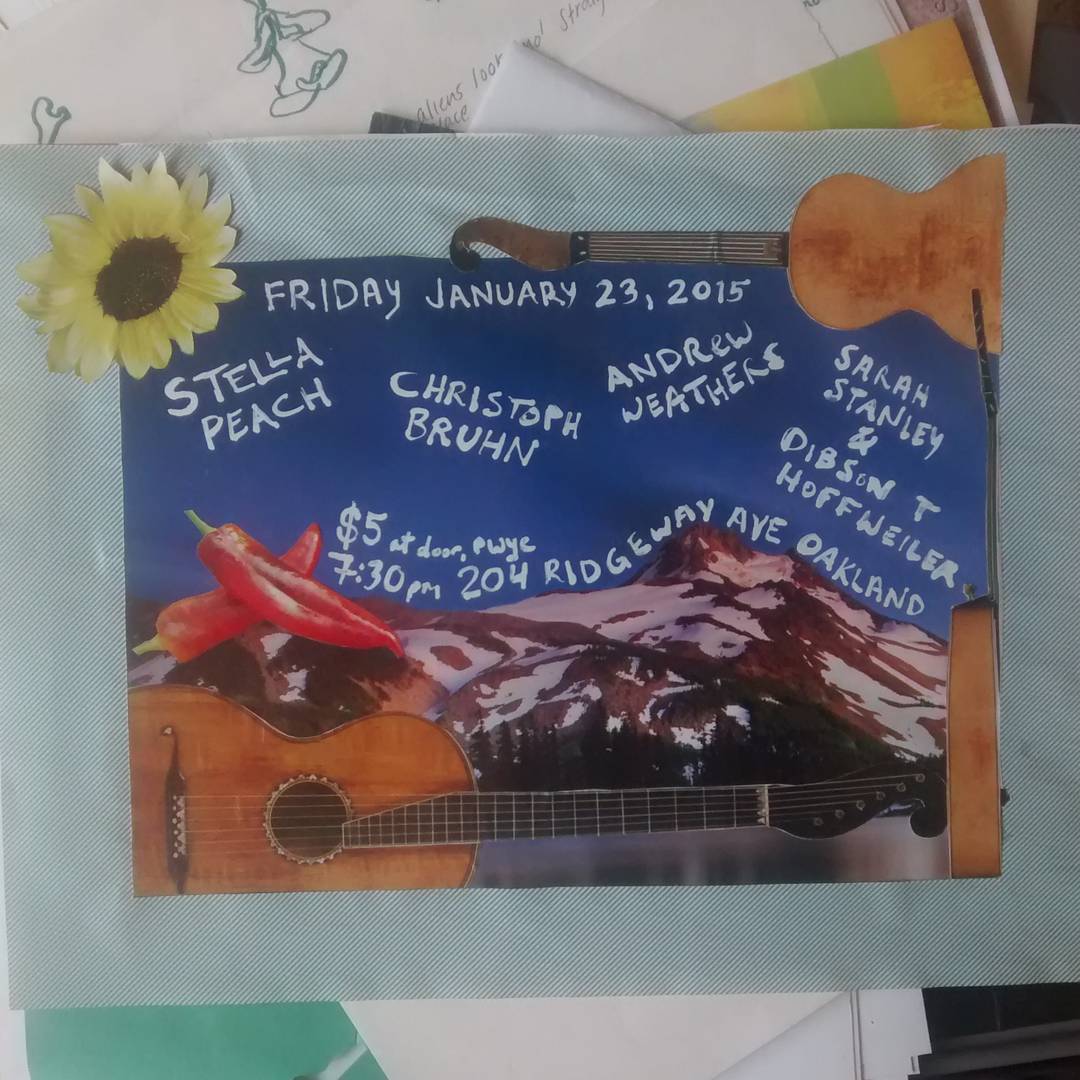 aliens look
FRIDAY JANUARY 23, 2015
STELLA
PEACH
CHRISTOPH
BRUHN
ANDREW
WEATHERS
SARAH
STANLEY
&
DIBSON T
HOFFWEILER
$5 at door, pwyc
7:30pm 204 RIDGEWAY AVE OAKLAND